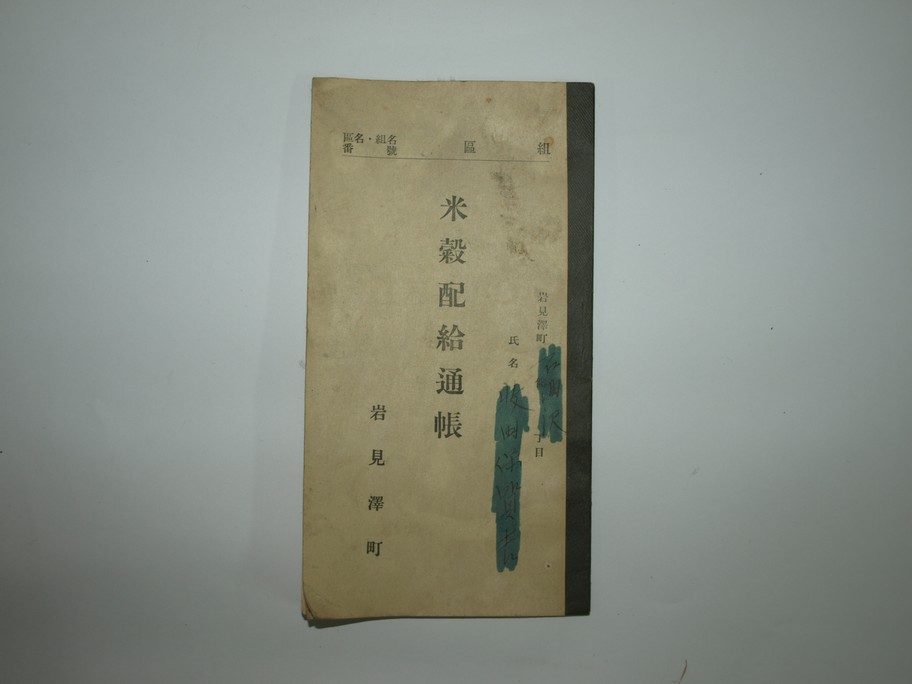 區名・組名
番號
區 組
岩見澤町 丁目
氏名
米穀配給通帳
岩見澤町